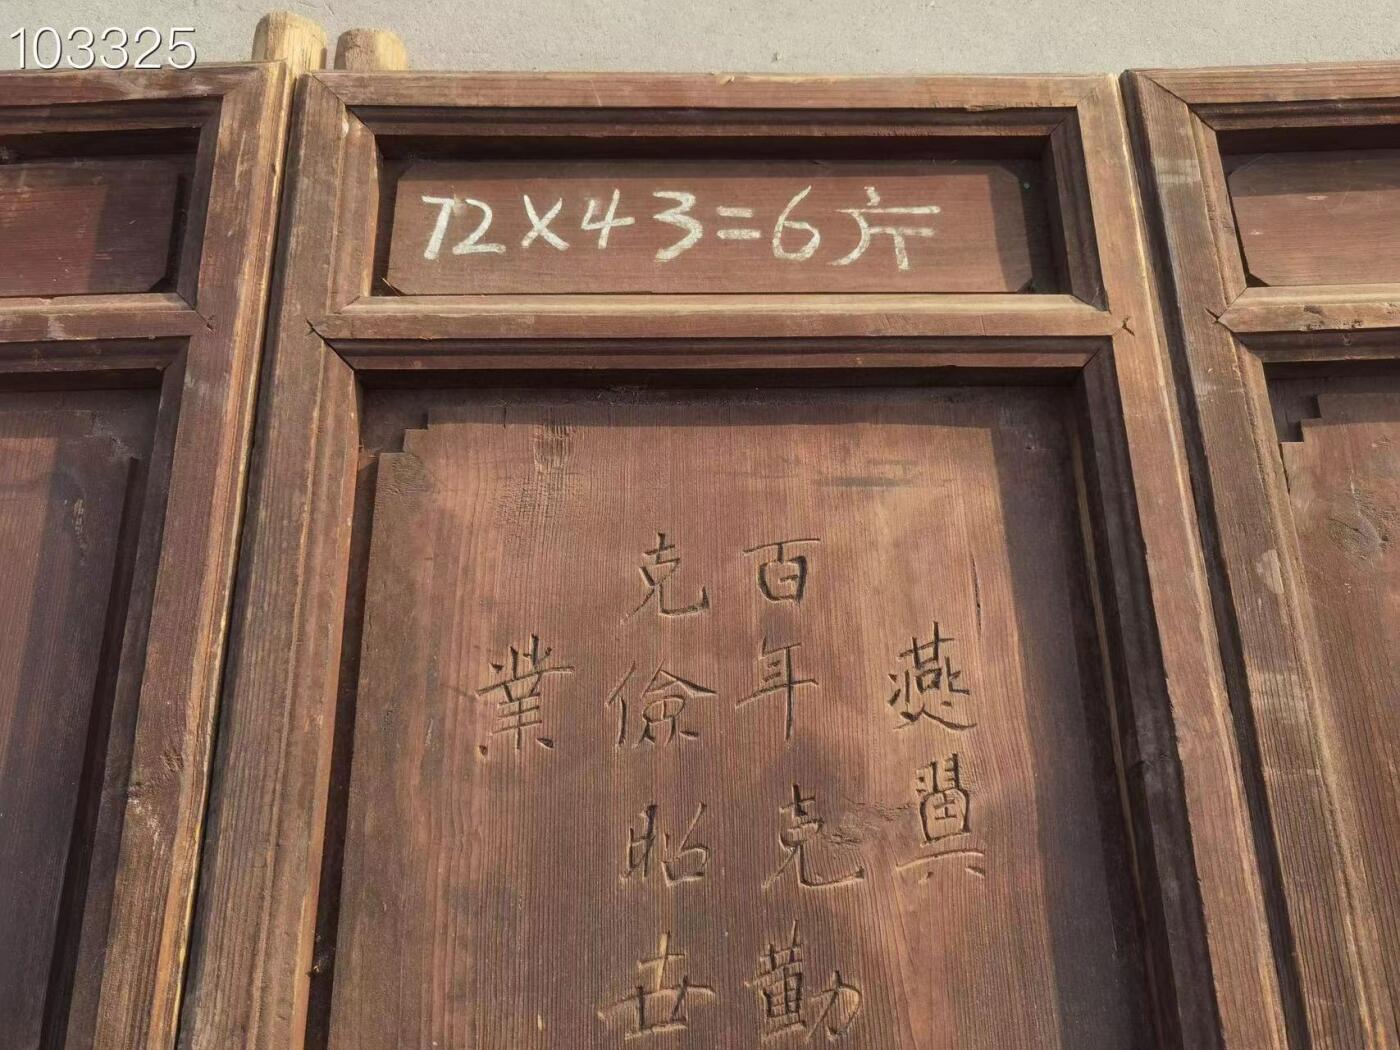 103325
72×43=6片
燕翼
百年克勤
克儉昭世
業